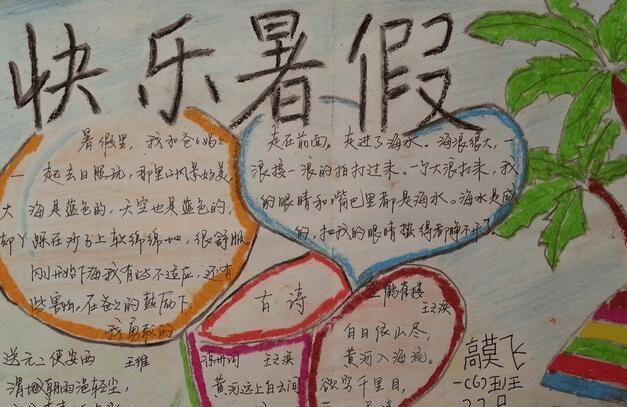 快乐暑假
暑假里，我和爸爸妈妈
一起去日照玩，那里的风景好美，
大海是蓝色的，天空也是蓝色的，
脚丫踩在沙子上软绵绵地，很舒服
刚开始下海我有些不适应，还有
些害怕，在爸爸的鼓励下，
我勇敢的
走在前面。走进了海水。海浪很大，一
浪接一浪的拍打过来。一个大浪打来，我
的眼睛和嘴巴里都是海水。海水是咸
的，把我的眼睛蛰得都睁不开了。
古诗
登鹳雀楼
王之涣
白日依山尽，
黄河入海流。
欲穷千里目，
凉州词 王之涣
黄河远上白云间
送元二使安西 王维
渭城朝雨浥轻尘，
高莫飞
一(6)班
22号